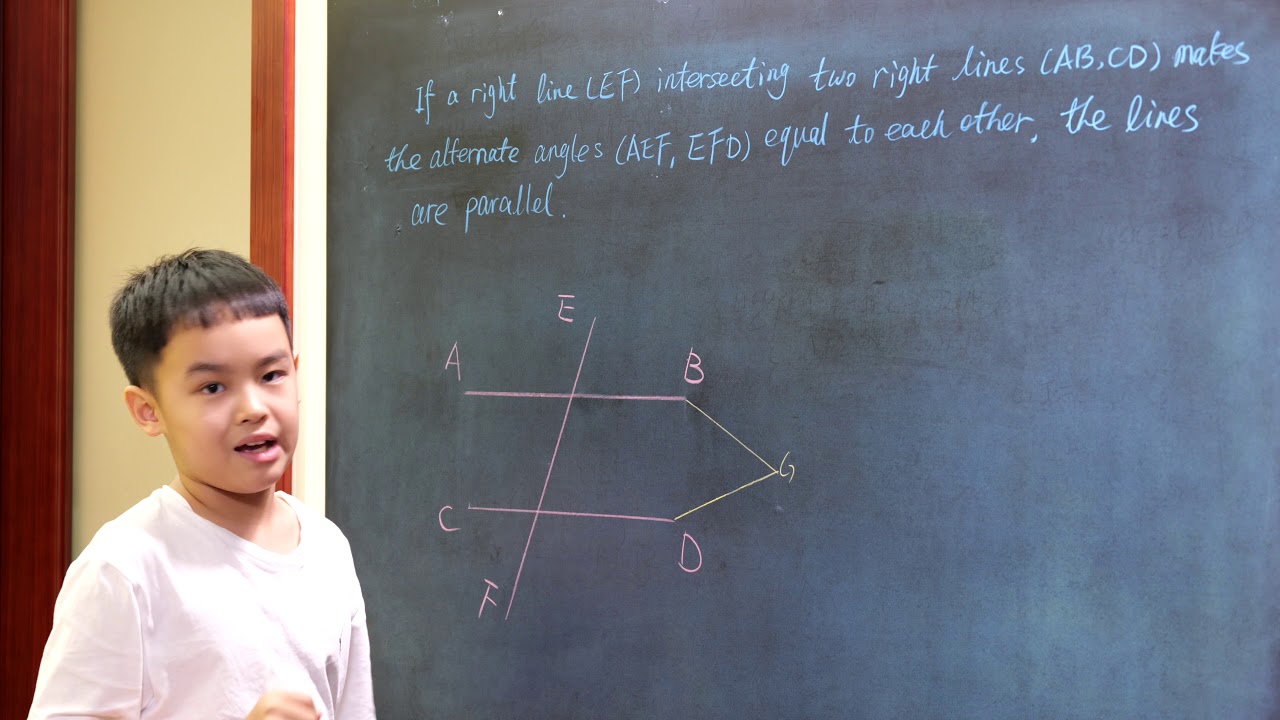 If a right line (EF) intersecting two right lines (AB, CD) makes
the alternate angles (AEF, EFD) equal to each other, the lines
are parallel.
E
A B
G
C D
F